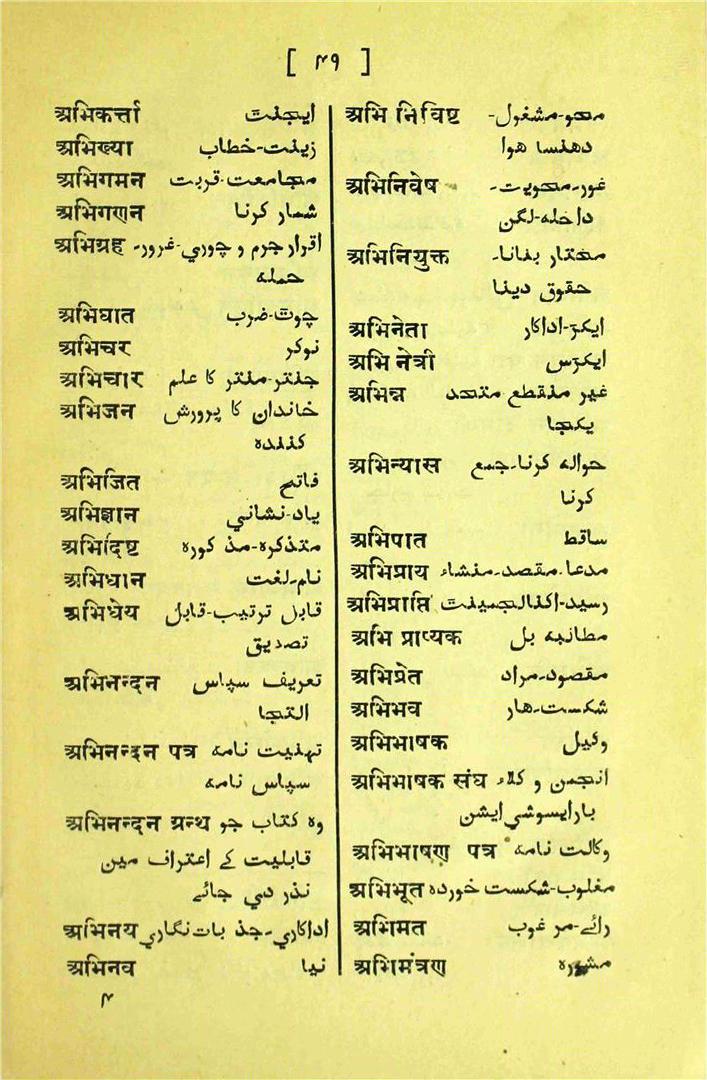 [ ४१ ]
अभिकर्त्ता ایجنٹ
अभिख्या زینت-خطاب
अभिगमन مجامعت-قربت
अभिगणन شمار کرنا
अभिग्रह اقرار جرم و چوري-غرور-
حملہ
अभिघात چوٹ-ضرب
अभिचर نوکر
अभिचार جنتر-منتر کا علم
अभिजन خاندان کا پرورش
کنندہ
अभिजित فاتح
अभिज्ञान یاد-نشاني
अभिदिष्ट متذکرہ-مذکورہ
अभिधान نام-لغت
अभिधेय قابل ترتیب-قابل
تصدیق
अभिनन्दन تعریف سپاس
التجا
अभिनन्दन पत्र تہنیت نامہ
سپاس نامہ
अभिनन्दन ग्रन्थ وہ کتاب جو
قابلیت کے اعتراف میں
نذر دي جائے
अभिनय اداکاري-جذبات نگاري
अभिनव نیا
४
अभि निविष्ट محو-مشغول-
دھنسا ہوا
अभिनिवेष غور-محویت-
داخلہ-لگن
अभिनियुक्त مختار بنانا-
حقوق دینا
अभिनेता ایکٹر-اداکار
अभि नेत्री ایکٹرس
अभिन्न غیر منقطع متحد
یکجا
अभिन्यास حوالہ کرنا-جمع
کرنا
अभिपात ساقط
अभिप्राय مدعا-مقصد-منشاء
अभिप्राप्ति رسید-اکنالجمینٹ
अभि प्राप्यक مطالبہ بل
अभिप्रेत مقصود-مراد
अभिभव شکست-ہار
अभिभाषक وکیل
अभिभाषक संघ انجمن و کلاء
بارایسوشي ایشن
अभिभाषण पत्र وکالت نامہ
अभिभूत مغلوب-شکست خوردہ
अभिमत رائے-مرغوب
अभिमंत्रण مشورہ